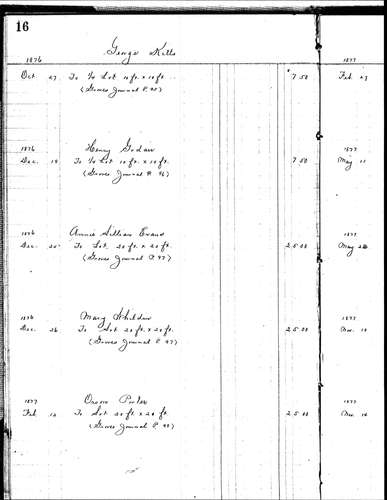 16
George Kells
1876 1877
Oct. 27 To ½ Lot 10 ft. x 10 ft. 7 50 Feb 27
(Graves Journal P. 95)
1876 Henry Godair 1877
Dec. 19 To ½ Lot 10 ft. x 10 ft. 7 50 May 11
(Graves Journal P. 96)
1876 Annie Evans 1877
Dec. 20 To Lot. 20 ft. x 20 ft. 25 00 May
(Graves Journal P. 97)
1876 Mary 1877
Dec. 26 To Lot 20 ft. x 20 ft. 25 00 Nov. 14
(Graves Journal P. 97)
1877 Porter 1877
Feb. To Lot 20 ft. x 20 ft. 25 00 Nov.
(Graves Journal P. 99)